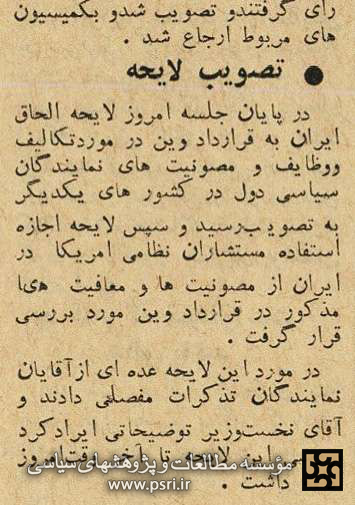 رأی گرفتندو تصویب شدو بکمیسیون
های مربوط ارجاع شد .
● تصویب لایحه
در پایان جلسه امروز لایحه الحاق
ایران به قرارداد وین در موردتکالیف
ووظایف و مصونیت های نمایندگان
سیاسی دول در کشور های یکدیگر
به تصویب‌رسید و سپس لایحه اجازه
استفاده مستشاران نظامی امریکا در
ایران از مصونیت ها و معافیت های
مذکور در قرارداد وین مورد بررسی
قرار گرفت .
در مورد این لایحه عده ای ازآقایان
نمایندگان تذکرات مفصلی دادند و
آقای نخست‌وزیر توضیحاتی ایرادکرد
این لایحه تا آخر وقت‌امروز
داشت .
مؤسسه مطالعات و پژوهشهای سیاسی
www.psri.ir